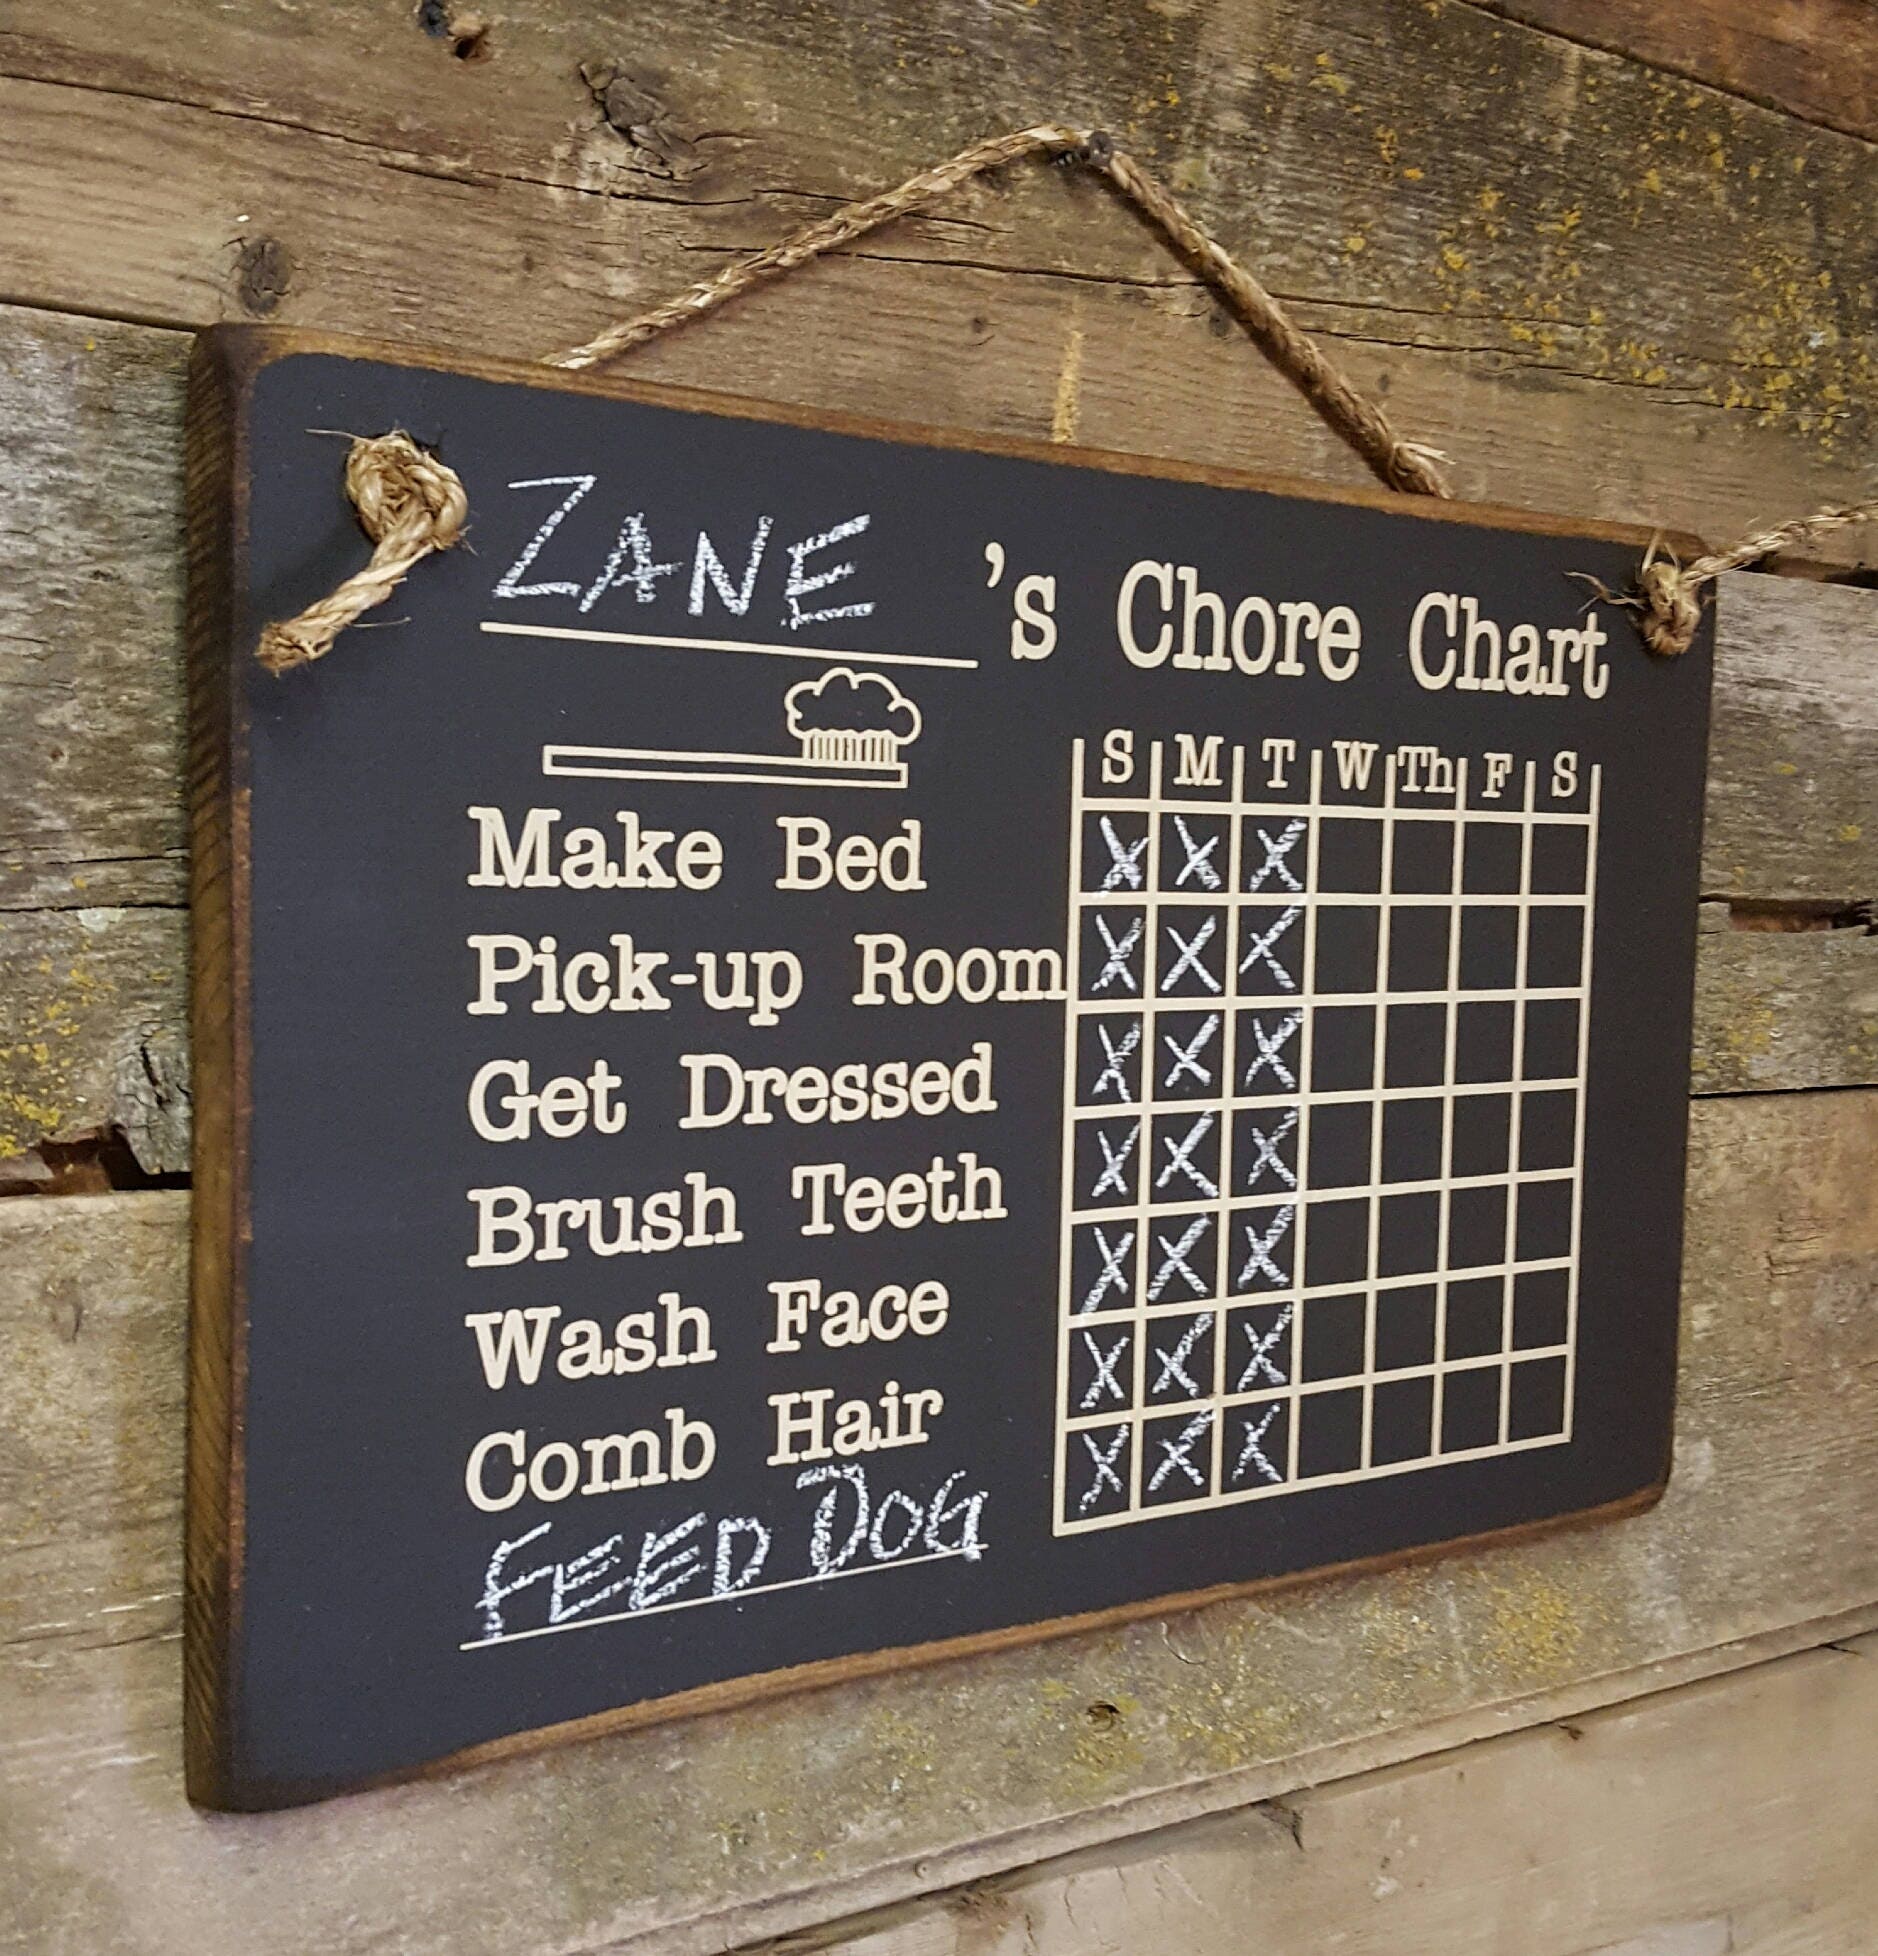 ZANE 's Chore Chart
S M T W Th F S
Make Bed X X X
Pick-up Room X X X
Get Dressed X X X
Brush Teeth X X X
Wash Face X X X
Comb Hair X X X
FEED DOG X X X